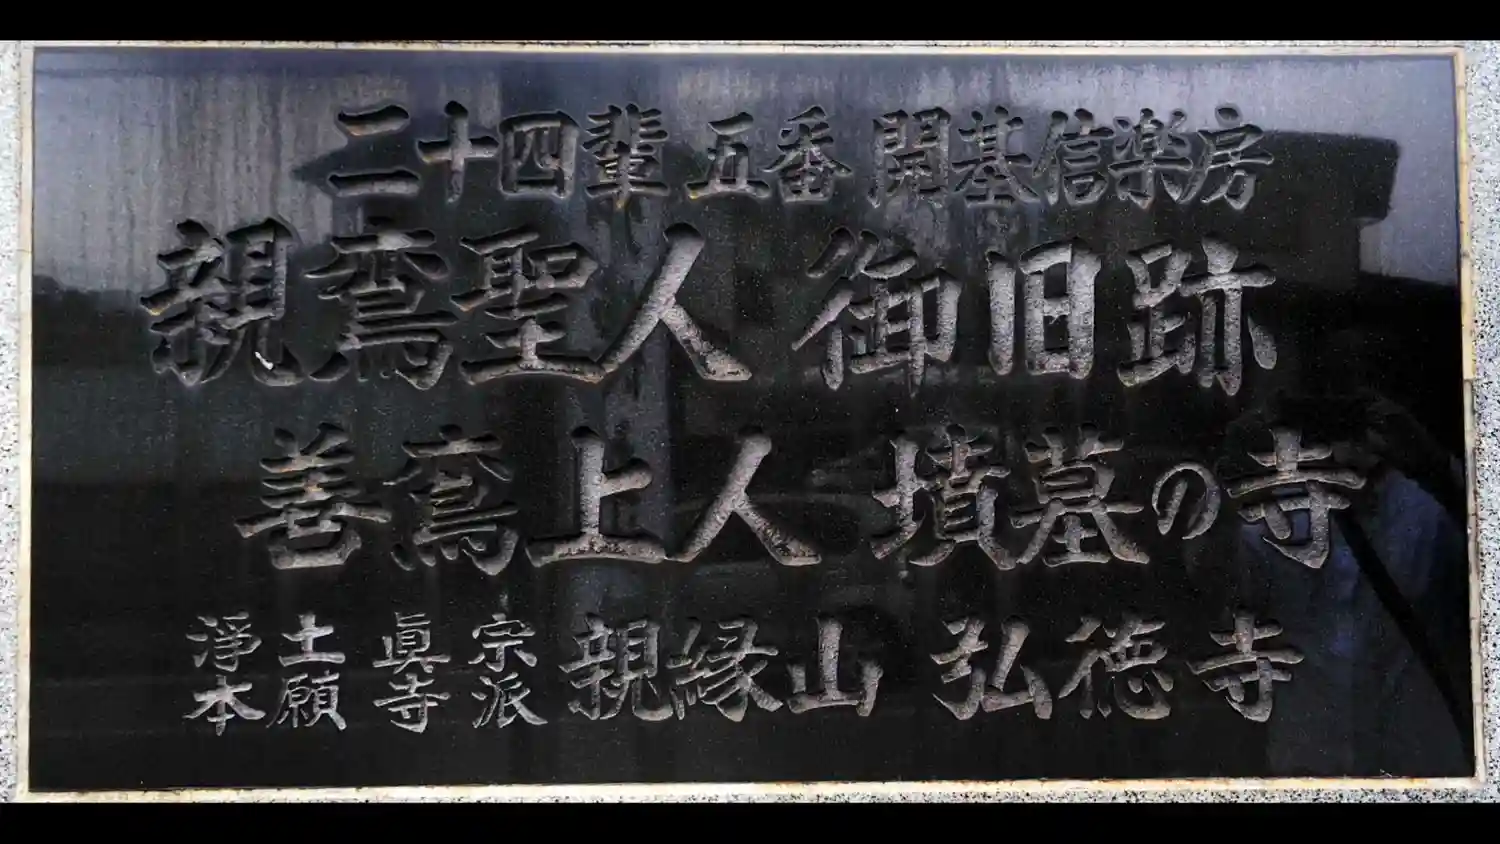 二十四輩 五番 開基信楽房
親鸾聖人 御旧跡
善鸾上人 墳墓の寺
淨土眞宗
本願寺派
親縁山 弘徳寺